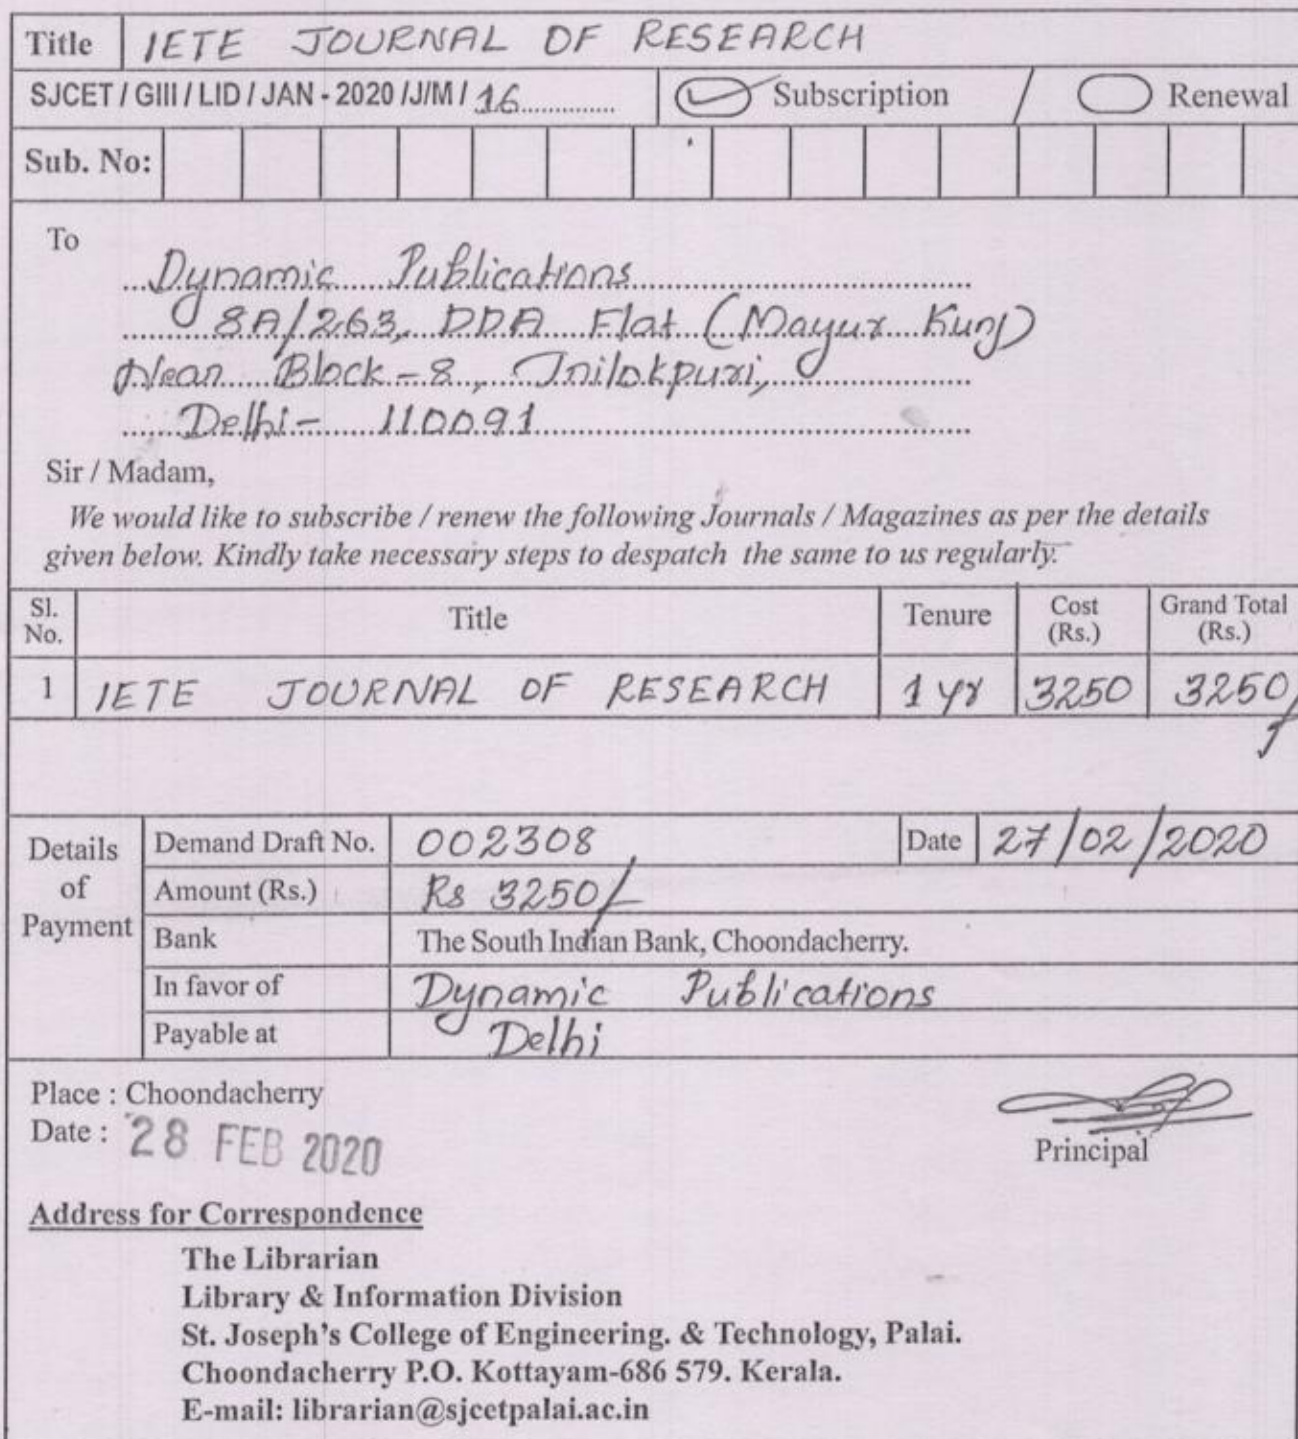 Title IETE JOURNAL OF RESEARCH
SJCET / GIII / LID / JAN - 2020 /J/M / 16.............. Subscription / Renewal
Sub. No:
To
Dynamic Publications
8A/263, DDA Flat (Mayur Kunj)
Near Block - 8, Trilokpuri,
Delhi - 110091
Sir / Madam,
We would like to subscribe / renew the following Journals / Magazines as per the details
given below. Kindly take necessary steps to despatch the same to us regularly.
Sl. No. Title Tenure Cost (Rs.) Grand Total (Rs.)
1 IETE JOURNAL OF RESEARCH 1 yr 3250 3250/
Details of Payment
Demand Draft No. 002308 Date 27/02/2020
Amount (Rs.) Rs 3250/-
Bank The South Indian Bank, Choondacherry.
In favor of Dynamic Publications
Payable at Delhi
Place : Choondacherry
Date : 28 FEB 2020
Principal
Address for Correspondence
The Librarian
Library & Information Division
St. Joseph's College of Engineering. & Technology, Palai.
Choondacherry P.O. Kottayam-686 579. Kerala.
E-mail: librarian@sjcetpalai.ac.in